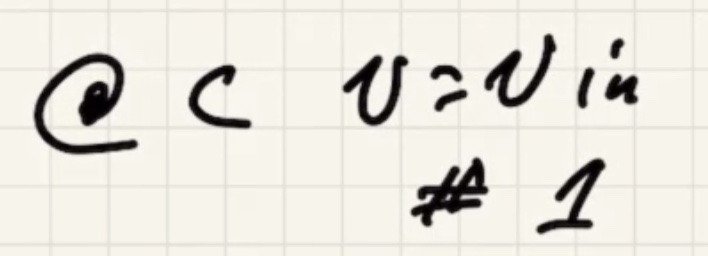 @ C V = V in
# 1